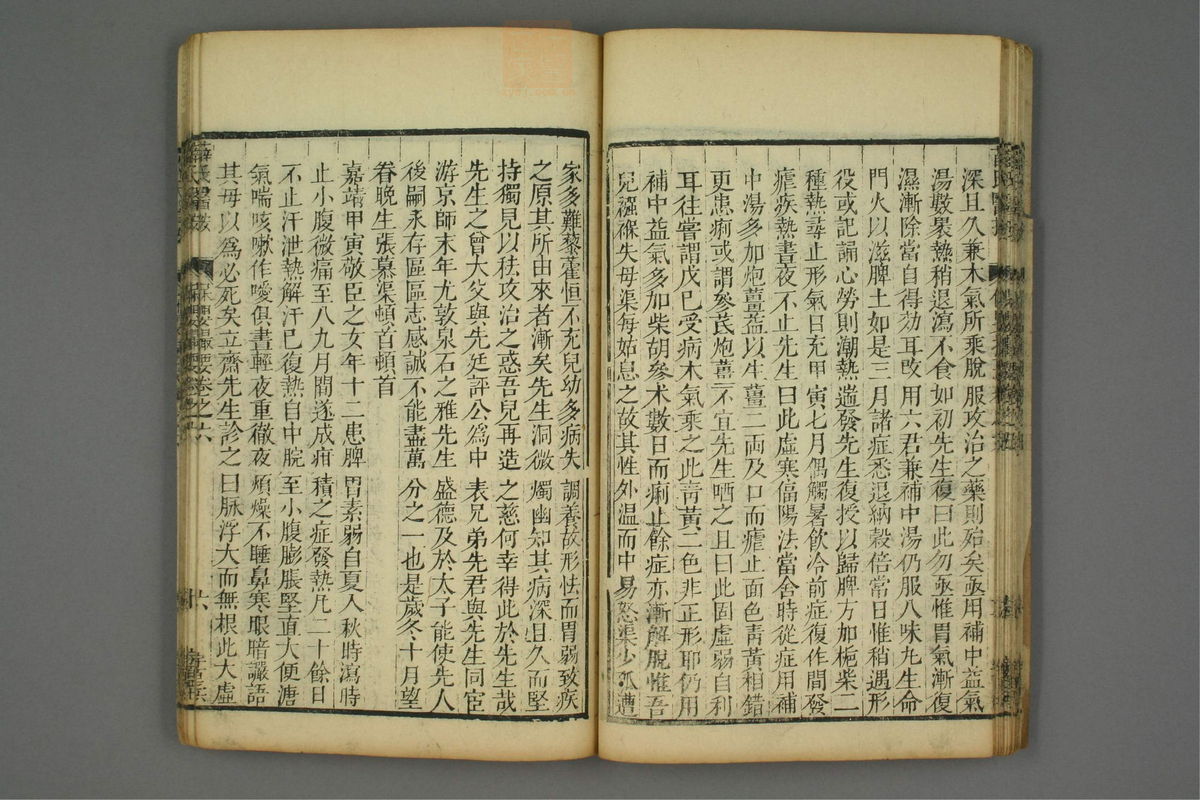 深且久兼木氣所乘脫服攻治之藥則殆矣亟用補中益氣
湯數累熱稍退瀉不食如初先生復曰此勿亟惟胃氣漸復
濕漸除當自得効耳改用六君兼補中湯仍服八味丸生命
門火以滋脾土如是三月諸症悉退納穀倍常日惟稍遇形
役或記誦心勞則潮熱遄發先生復授以歸脾方加梔柴二
種熱尋止形氣日充甲寅七月偶觸暑飲冷前症復作間發
瘧疾熱晝夜不止先生曰此虛寒偪陽法當舍時從症用補
中湯多加炮薑益以生薑二両及口而瘧止面色靑黃相錯
更患痢或謂參芪炮薑不宜先生哂之且曰此固虛弱自利
耳往嘗謂戊巳受病木氣乘之此靑黃二色非正形耶仍用
補中益氣多加柴胡參术數日而痢止餘症亦漸解脫惟吾
兒襁褓失母渠每姑息之故其性外温而中易怒渠少孤遭
家多難藜藿恒不充兒幼多病失調養故形怯而胃弱致疾
之原其所由來者漸矣先生洞微燭幽知其病深且久而堅
持獨見以祛攻治之惑吾兒再造之慈何幸得此於先生哉
先生之曾大父與先廷評公爲中表兄弟先君與先生同宦
游京師末年尤敦泉石之雅先生盛德及於太子能使先人
後嗣永存區區志感誠不能盡萬分之一也是歲冬十月望
眷晚生張慕渠頓首頓首
嘉靖甲寅敬臣之女年十二患脾胃素弱自夏入秋時瀉時
止小腹微痛至八九月間遂成疳積之症發熱凡二十餘日
不止汗泄熱解汗已復熱自中脘至小腹膨脹堅直大便溏
氣喘咳嗽作噯俱晝輕夜重徹夜煩燥不睡鼻寒眼暗讝語
其母以爲必死矣立齋先生診之曰脉浮大而無根此大虛